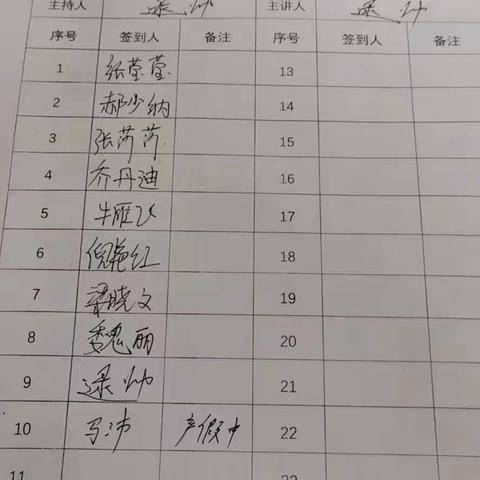 主持人 逯帅 主讲人 逯帅
序号 签到人 备注 序号 签到人 备注
1 张莹莹 13
2 郝少纳 14
3 张芮芮 15
4 乔丹迪 16
5 牛雁飞 17
6 倪艳红 18
7 梁晓文 19
8 魏丽 20
9 逯帅 21
10 马沛 产假中 22
11